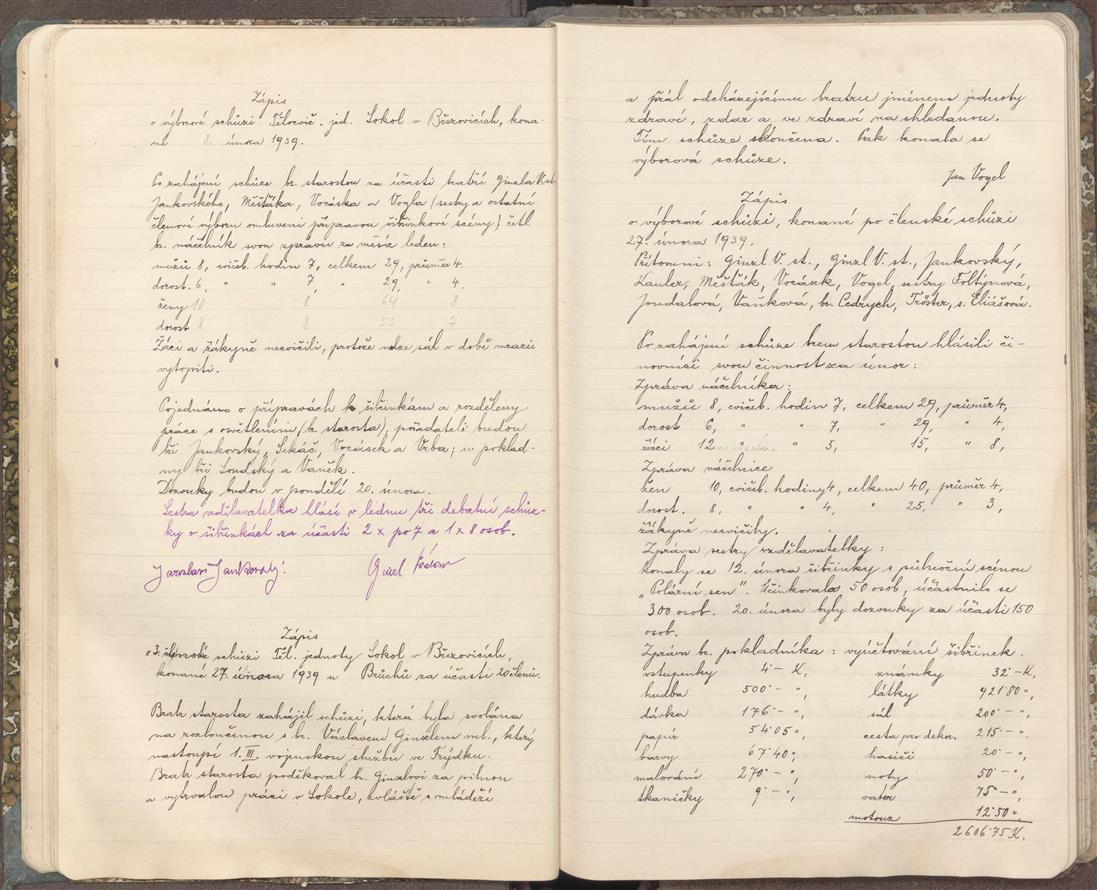 Zápis
o výborové schůzi Tělocvič. jed. Sokol v Březovicích, kona-
né 8. února 1939.
Po zahájení schůze br. starostou za účasti bratří Ginzla V. st.
Jankovského, Měšťáka, Vocáska a Vogla (sestry a ostatní
členové výboru omluveni přípravou šibřinkové scény) četl
br. náčelník svou zprávu za měsíc leden:
mužů 8, cvičeb. hodin 7, celkem 29, průměr 4.
dorost. 6, " " 7 " 29, " 4.
ženy 10 8 64 8
dorost 8 8 53 7
Žáci a žákyně necvičili, protože nelze sál v době mrazů
vytopiti.
Pojednáno o přípravách k šibřinkám a rozděleny
práce s osvětlením (br. starosta), pořadateli budou
bři Jankovský, Sekáč, Vocásek a Vrba; u poklad-
ny bři Soudský a Vaněk.
Dozvuky budou v pondělí 20. února.
Sestra vzdělavatelka hlásí v lednu tři debatní schůz-
ky o šibřinkách za účasti 2 x po 7 a 1 x 8 osob.
Jaroslav Jankovský. Ginzl Václav
Zápis
o 3. členské schůzi Těl. jednoty Sokol v Březovicích,
konané 27. února 1939 u Brůchů za účasti 20 členů.
Bratr starosta zahájil schůzi, která byla svolána
na rozloučenou s br. Václavem Ginzlem ml., který
nastoupí 1. III. vojenskou službu ve Frýdku.
Bratr starosta poděkoval br. Ginzlovi za pilnou
a vytrvalou práci v Sokole, zvláště s mládeží
a přál odcházejícímu bratru jménem jednoty
zdraví, zdar a ve zdraví na shledanou.
Tím schůze skončena. Pak konala se
výborová schůze.
Jan Vogel
Zápis
o výborové schůzi, konané po členské schůzi
27. února 1939.
Přítomni: Ginzl V. st., Ginzl V. st., Jankovský,
Kauler, Měšťák, Vocásek, Vogel, sestry Foltýnová,
Jondalová, Vaňková, br. Cedrych, Tröster, s. Eliášová.
Po zahájení schůze brem starostou hlásili či-
novníci svou činnost za únor:
Zpráva náčelníka:
mužů 8, cvičeb. hodin 7, celkem 29, průměr 4,
dorost 6, " " 7, " 29, " 4,
žáci 12 " 5, 15, " 8,
Zpráva náčelnice
žen 10, cvičeb. hodiny 4, celkem 40, průměr 4,
dorost. 8, " " 4, " 25, " 3,
žákyně necvičily.
Zpráva sestry vzdělavatelky:
konaly se 12. února šibřinky s půlnoční scénou
„Polární sen". Účinkovalo 50 osob, účastnilo se
300 osob. 20. února byly dozvuky za účasti 150
osob.
Zpráva br. pokladníka: vyúčtování šibřinek.
vstupenky 4·- K, známky 32·- K,
hudba 500·- ", látky 921·80 ",
dávka 176·- ", sál 200·- ",
papír 54·05 ", cesta pro dekor. 215·- ",
barvy 67·40 ", hasiči 20·- ",
malování 270·- ", noty 50·- ",
tkaničky 9·- ", vater 75·- ",
motouz 12·50 ",
2606·75 K.